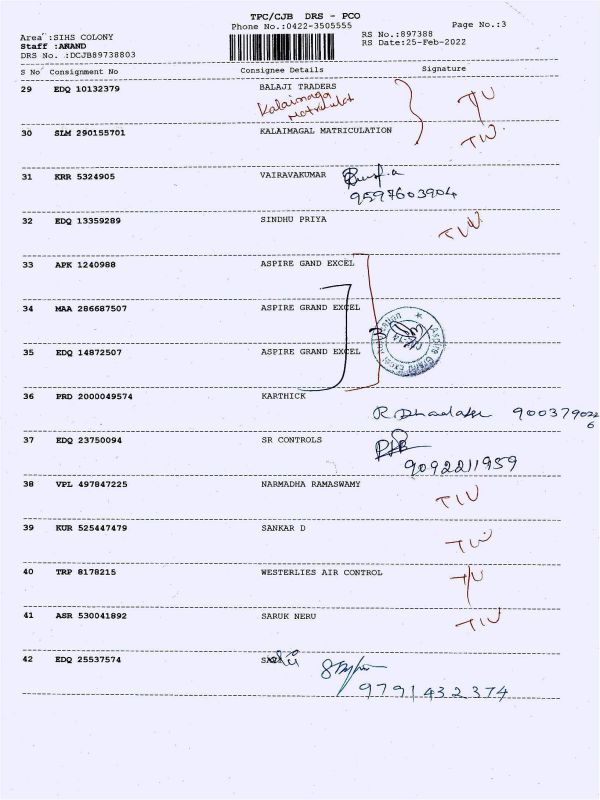 TPC/CJB DRS - PCO
Phone No.:0422-3505555
Page No.:3
Area :SIHS COLONY
Staff :ANAND
DRS No. :DCJB89738803
RS No.:897388
RS Date:25-Feb-2022
S No Consignment No Consignee Details Signature
29 EDQ 10132379 BALAJI TRADERS
Kalaimaga
Matriculat
T/U
30 SLM 290155701 KALAIMAGAL MATRICULATION
TIU.
31 KRR 5324905 VAIRAVAKUMAR
9597603904
32 EDQ 13359289 SINDHU PRIYA
TIU.
33 APK 1240988 ASPIRE GAND EXCEL
34 MAA 286687507 ASPIRE GRAND EXCEL
35 EDQ 14872507 ASPIRE GRAND EXCEL
36 PRD 2000049574 KARTHICK
37 EDQ 23750094 SR CONTROLS
9092211959
38 VPL 497847225 NARMADHA RAMASWAMY
TIU
39 KUR 525447479 SANKAR D
TIU
40 TRP 8178215 WESTERLIES AIR CONTROL
T/U
41 ASR 530041892 SARUK NERU
TIU
42 EDQ 25537574
9791432374